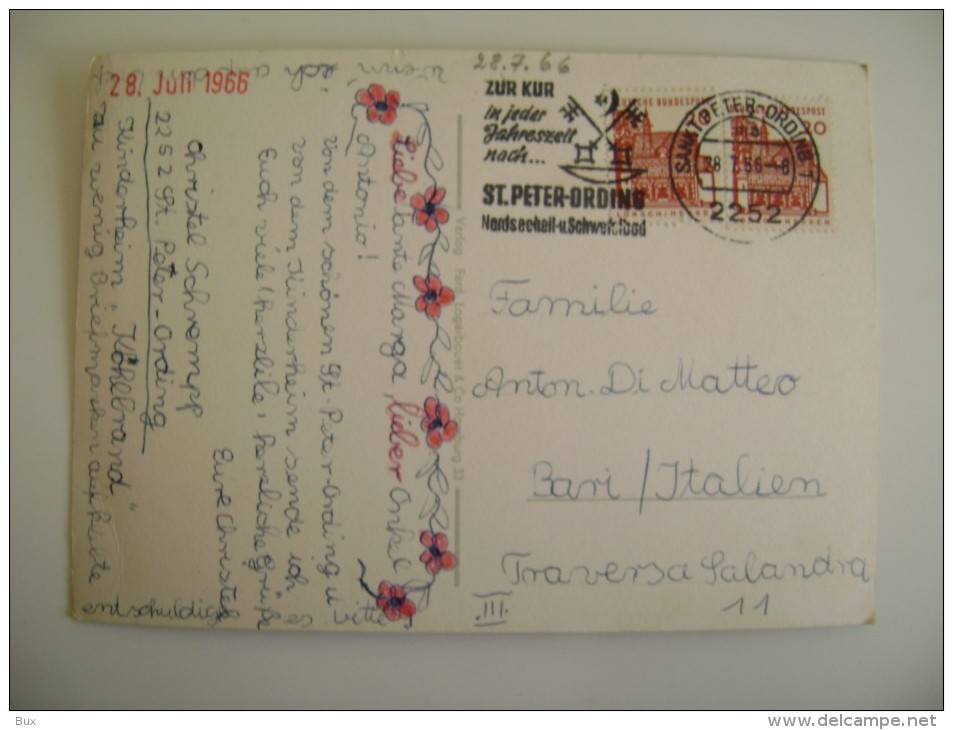 28. Juli 1966
Liebe Tante Marga, lieber Onkel
Antonio!
Von dem schönen St.-Peter-Ording u.
von dem Kinderheim sende ich
Euch viele, herzliche Grüße
Eure Christel
Christel Schrempp
2252 St. Peter-Ording
Kinderheim „Köhlbrand"
zu wenig Briefmarken auf
bitte
entschuldige
wenn
es
28.7.66
ZUR KUR
in jeder
Jahreszeit
nach...
ST. PETER-ORDING
Nordseeheil-u. Schwefelbad
SANKT PETER-ORDING 1
28.7.66-8
2252
DEUTSCHE BUNDESPOST
20
LORSCH/HESSEN
Verlag Ferd. Lagerbauer & Co Hamburg 33
Familie
Anton. Di Matteo
Bari / Italien
Traversa Salandra
11
III.
Bux
www.delcampe.net